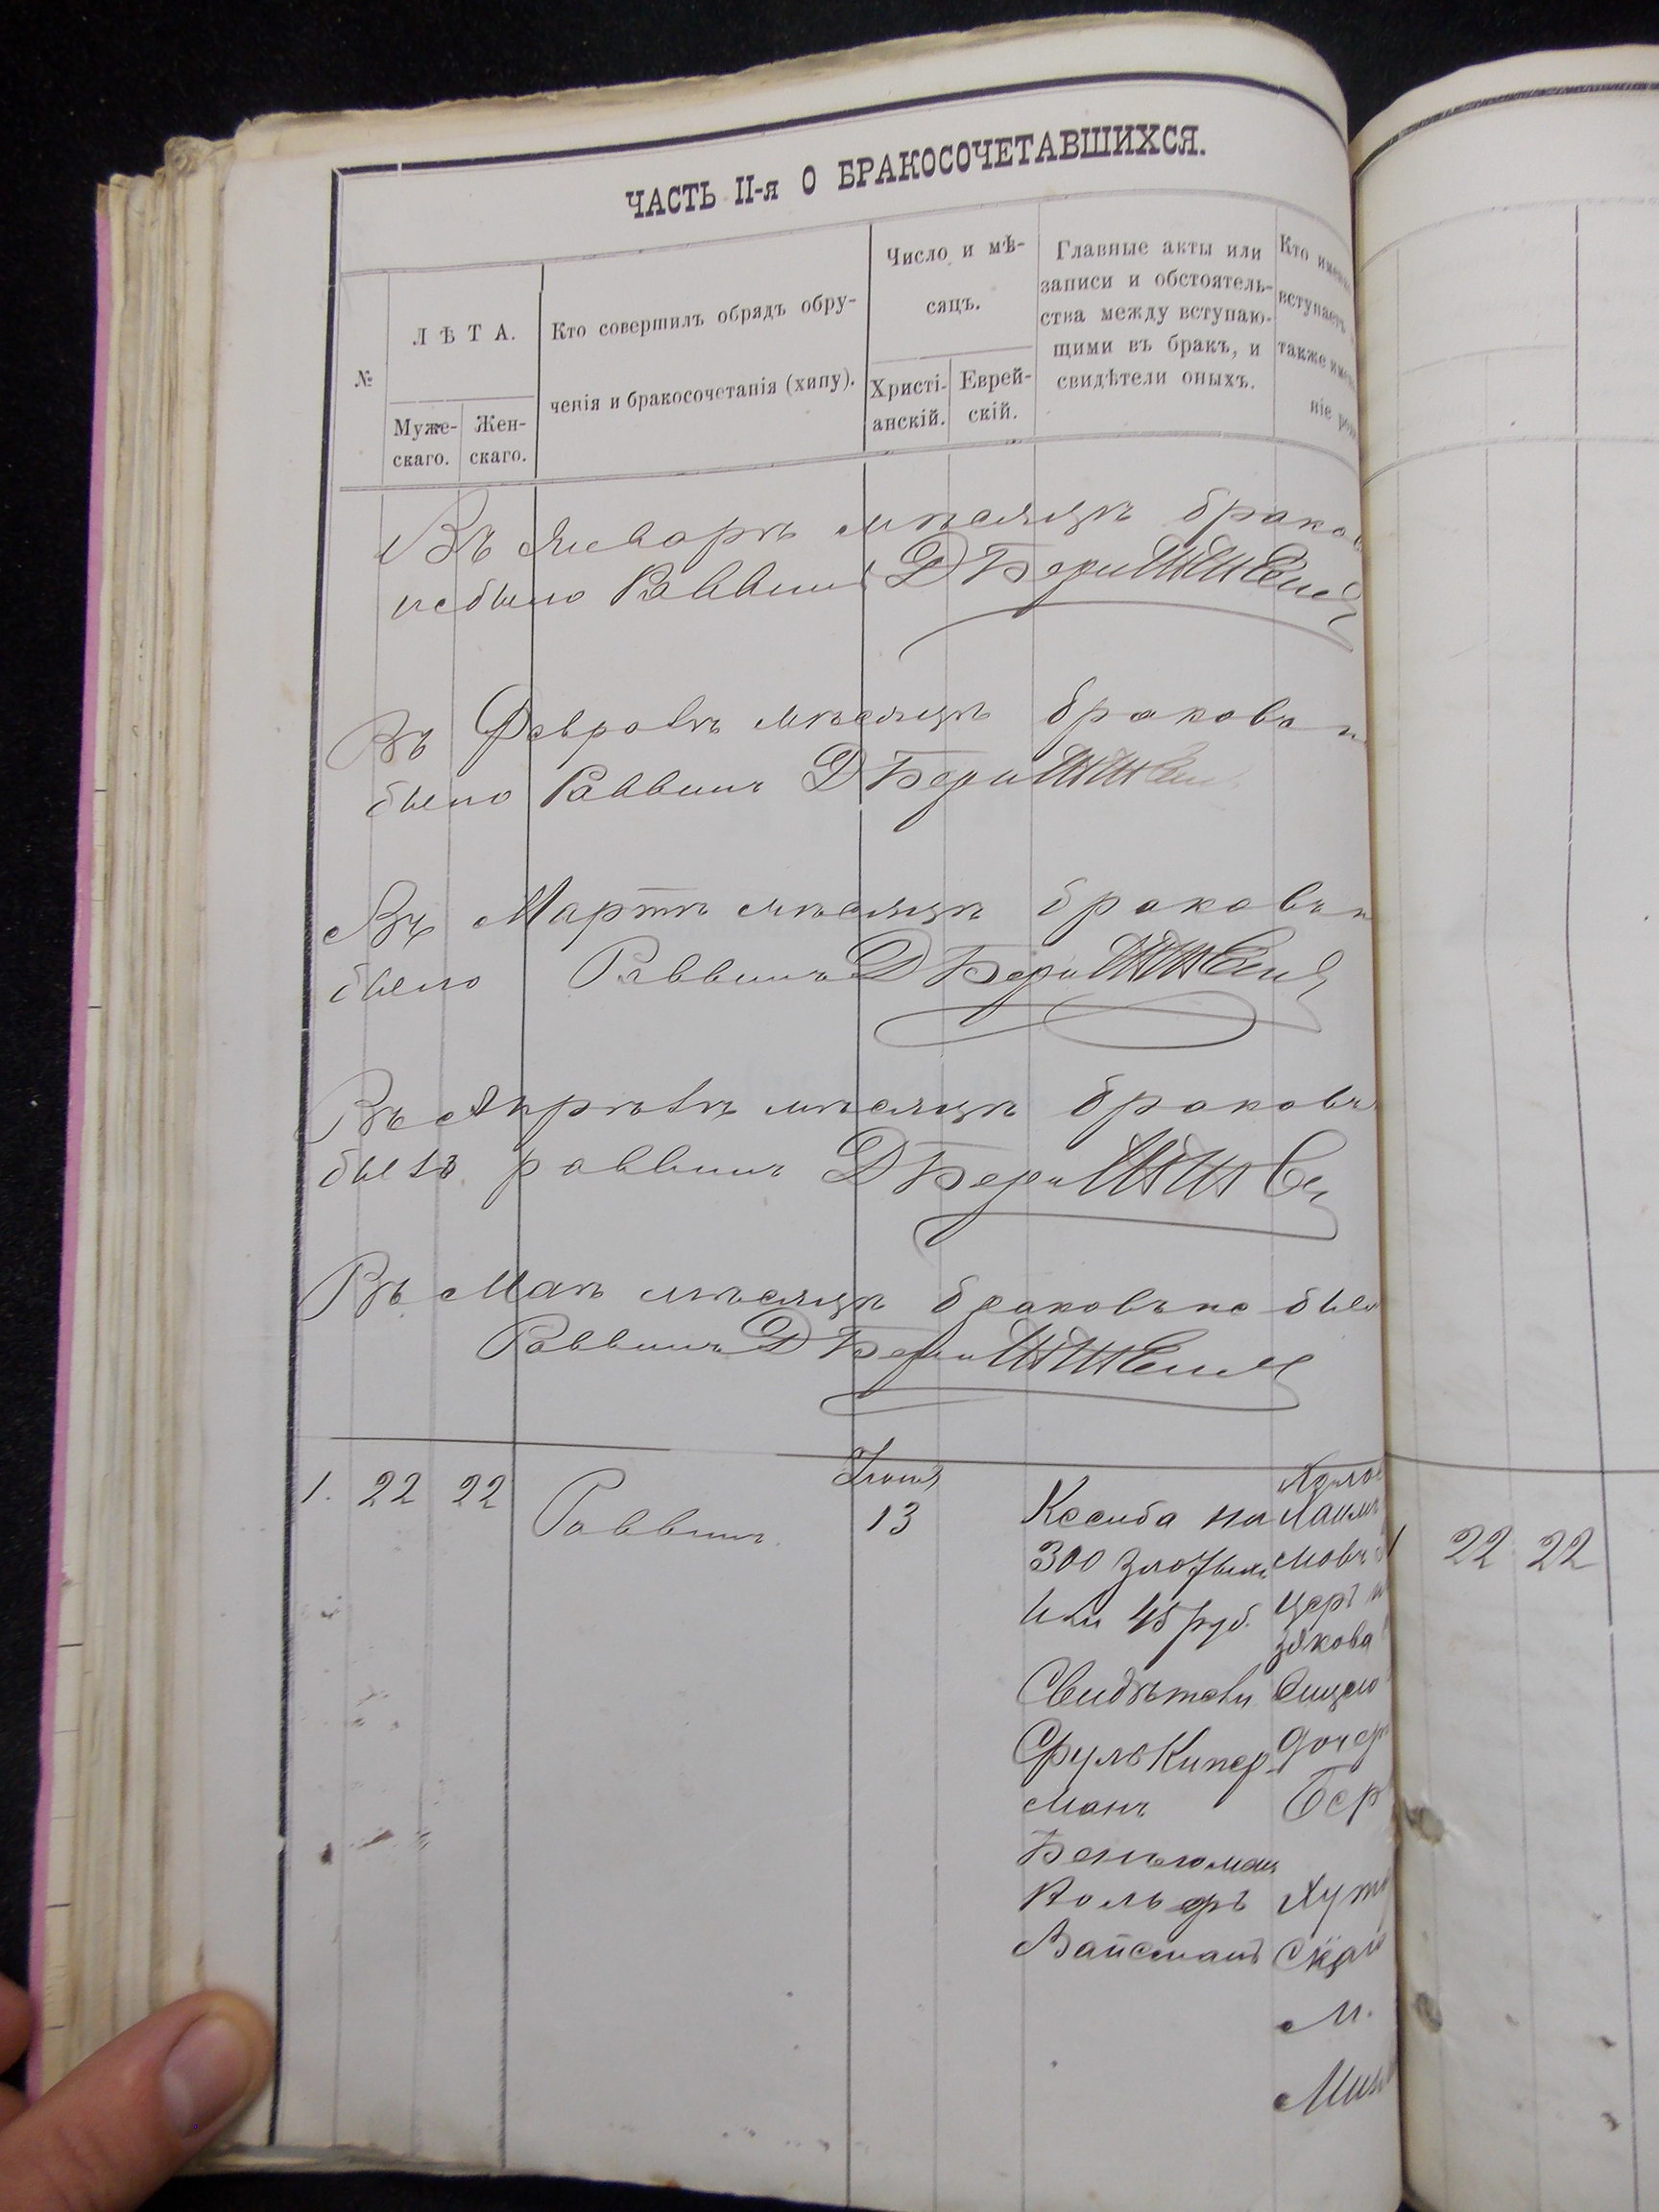 ЧАСТЬ II-я О БРАКОСОЧЕТАВШИХСЯ.
№
ЛѢТА.
Муже-
скаго.
Жен-
скаго.
Кто совершилъ обрядъ обру-
ченія и бракосочетанія (хипу).
Число и мѣ-
сяцъ.
Христі-
анскій.
Еврей-
скій.
Главные акты или
записи и обстоятель-
ства между вступаю-
щими въ бракъ, и
свидѣтели оныхъ.
Кто имен
вступаетъ
также имен
ніе ро
Въ Январѣ мѣсяцѣ браков
небыло Раввинъ Д
Въ Февралѣ мѣсяцѣ браковъ н
было Раввинъ Д
Въ Мартѣ мѣсяцѣ браковъ н
было Раввинъ Д
Въ Апрѣлѣ мѣсяцѣ браковъ
было раввинъ Д
Въ Маѣ мѣсяцѣ браковъ не было
Раввинъ Д
1. 22 22 Раввинъ
Іюня
13
Ксыба на
300 злотыхъ
или 45 руб.
Свидѣтели
Сруль Кипер-
манъ
Беньюмин
Вольфъ
Вайсманъ
Хаимъ
мовъ
церъ
зякова
дочер
Бер
М.
1 22 22